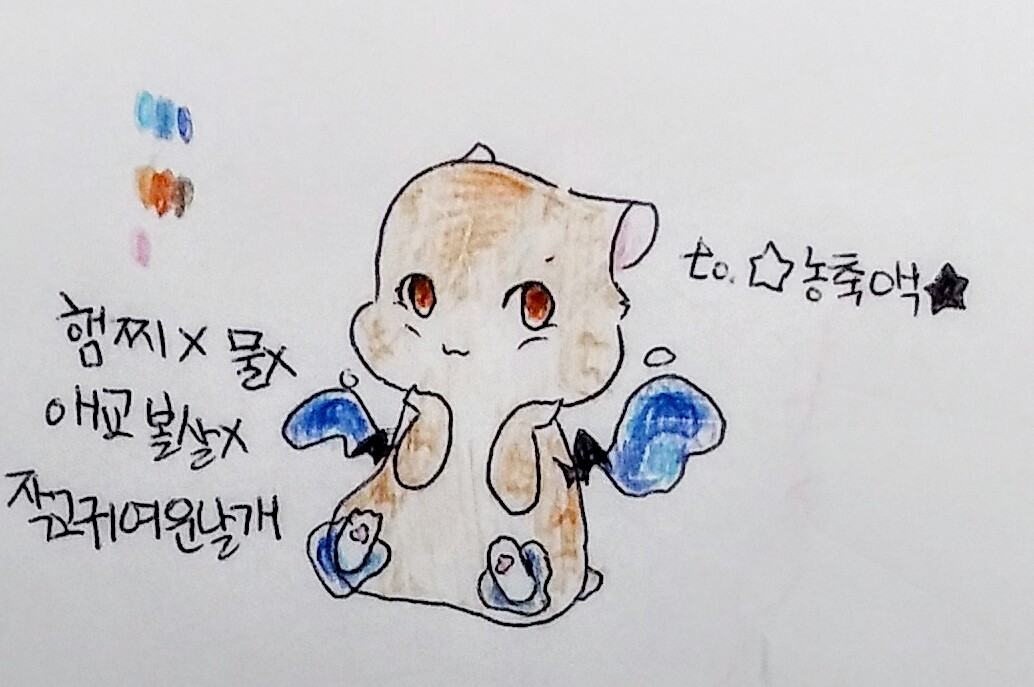 햄찌X물X
애교볼살X
작고귀여운날개
to.☆농축액★